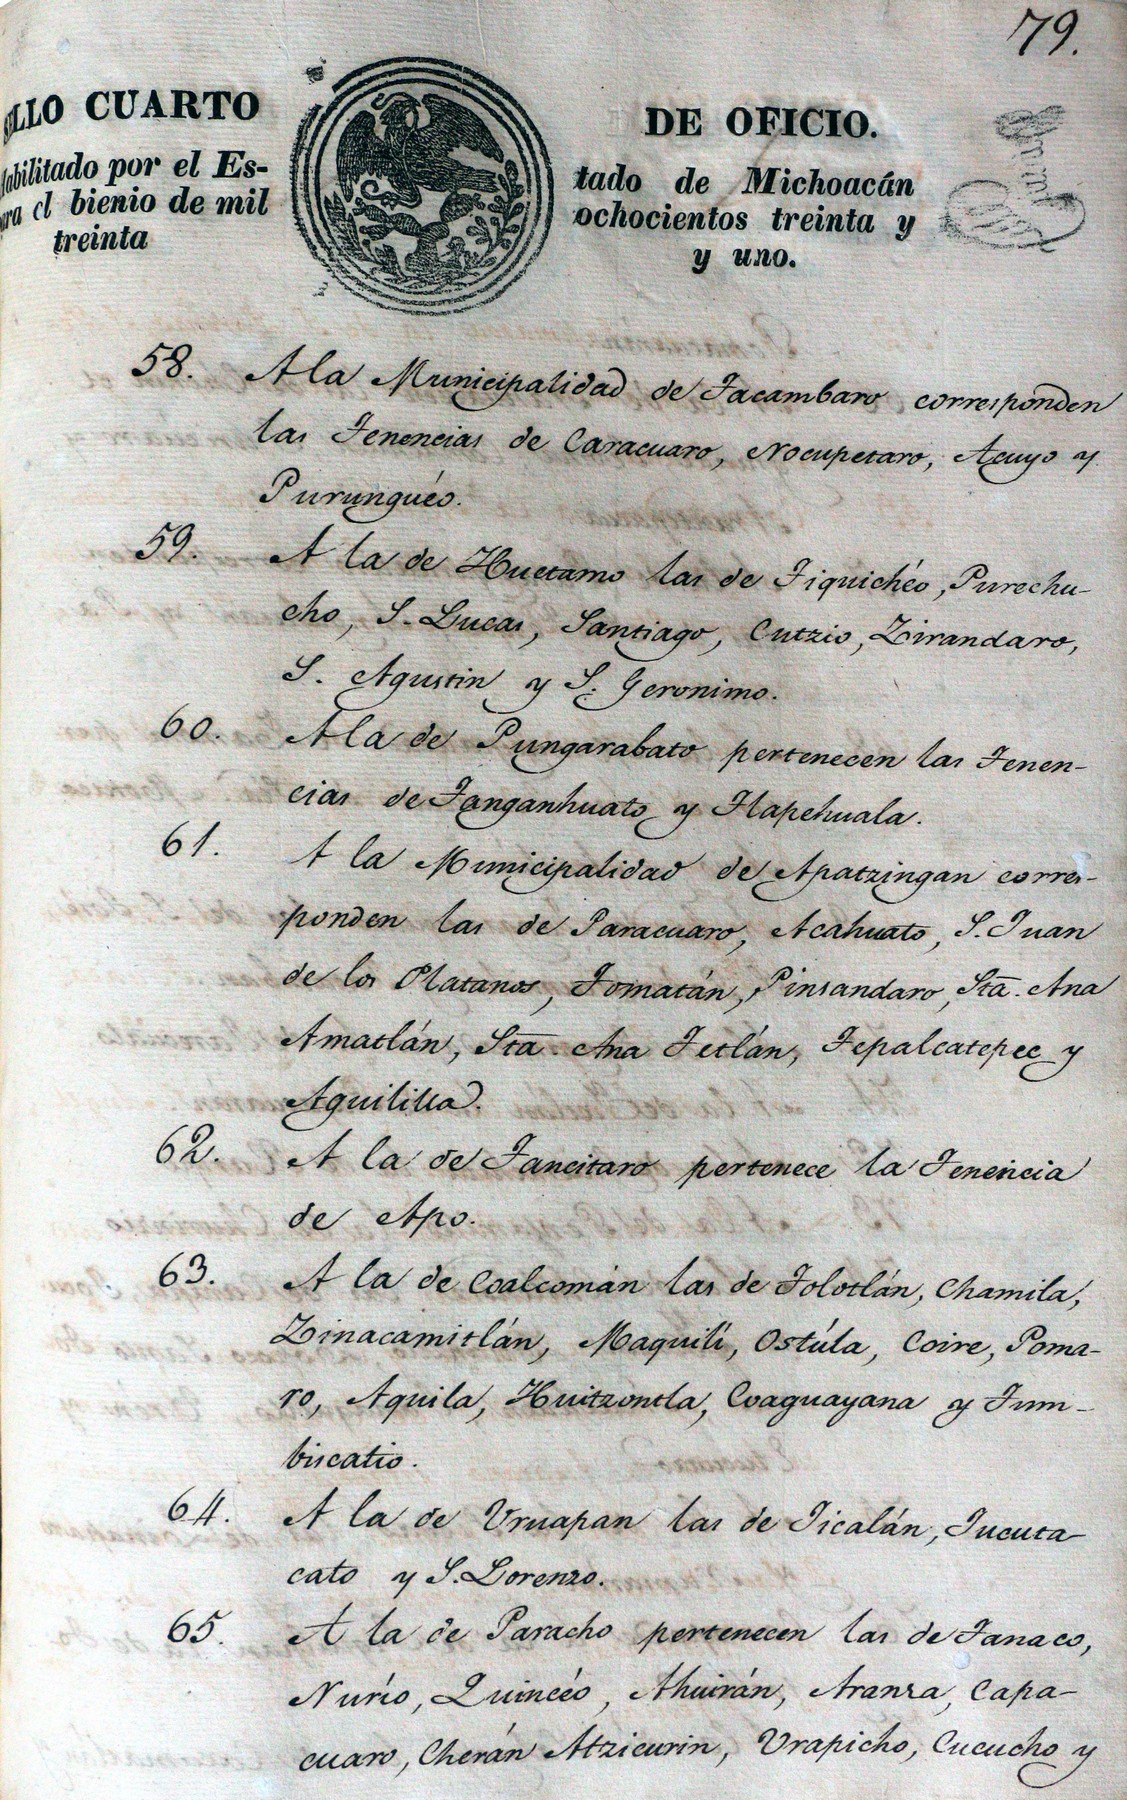 79.
SELLO CUARTO DE OFICIO.
Habilitado por el Estado de Michoacán
para el bienio de mil ochocientos treinta y
treinta y uno.
58. A la Municipalidad de Tacambaro corresponden
las Tenencias de Caracuaro, Nocupetaro, Acuyo y
Purunguéo.
59. A la de Huetamo las de Tiquichéo, Purechu-
cho, S. Lucas, Santiago, Cutzio, Zirandaro,
S. Agustin y S. Geronimo.
60. A la de Pungarabato pertenecen las Tenen-
cias de Tanganhuato y Tlapehuala.
61. A la Municipalidad de Apatzingan corres-
ponden las de Paracuaro, Acahuato, S. Juan
de los Platanos, Tomatán, Pinsandaro, Sta. Ana
Amatlán, Sta. Ana Tetlán, Tepalcatepec y
Aguililla.
62. A la de Tancitaro pertenece la Tenencia
de Apo.
63. A la de Coalcomán las de Tolotlán, Chamila,
Zinacamitlán, Maquilí, Ostúla, Coire, Poma-
ro, Aquila, Huitzontla, Coaguayana y Tum-
biscatio.
64. A la de Uruapan las de Jicalán, Jucuta-
cato y S. Lorenzo.
65. A la de Paracho pertenecen las de Tanaco,
Nurío, Quincéo, Ahuirán, Aranza, Capa-
cuaro, Cherán Atzicurin, Urapicho, Cucucho y